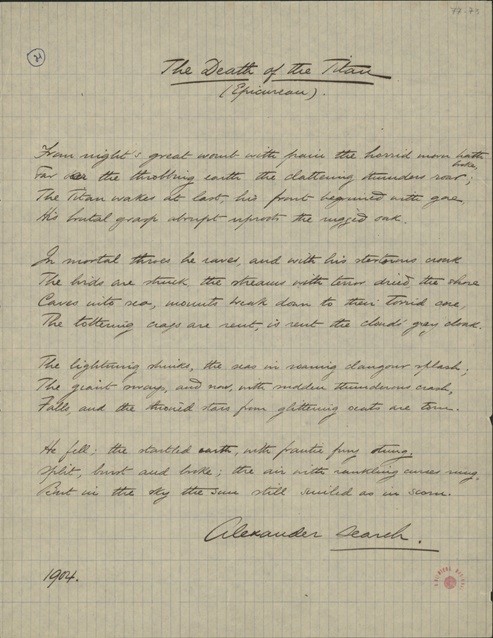 78-71
71
The Death of the Titan
(Epicurean).
From night's great womb with pain the horrid morn hath
broken
Far o'er the throbbing earth the clattering thunders roar;
The Titan wakes at last, his front begrimed with gore
His brutal grasp abrupt uproots the rugged oak.
In mortal throes he raves, and with his stertorous croak
The birds are struck the streams with terror dried, the shore
Caves into sea, mounts break down to their torrid core,
The tottering crags are rent, is rent the cloud's grey cloak.
The lightning shrieks, the seas in roaring clangour splash;
The giant sways, and now, with sudden thunderous crash,
Falls, and the stars from glittering seats are torn.
He fell: the startled earth, with frantic fury stung,
Split, burst and broke; the air with rankling curses rung,
But in the sky the sun still smiled as in scorn.
Alexander Search.
1904.